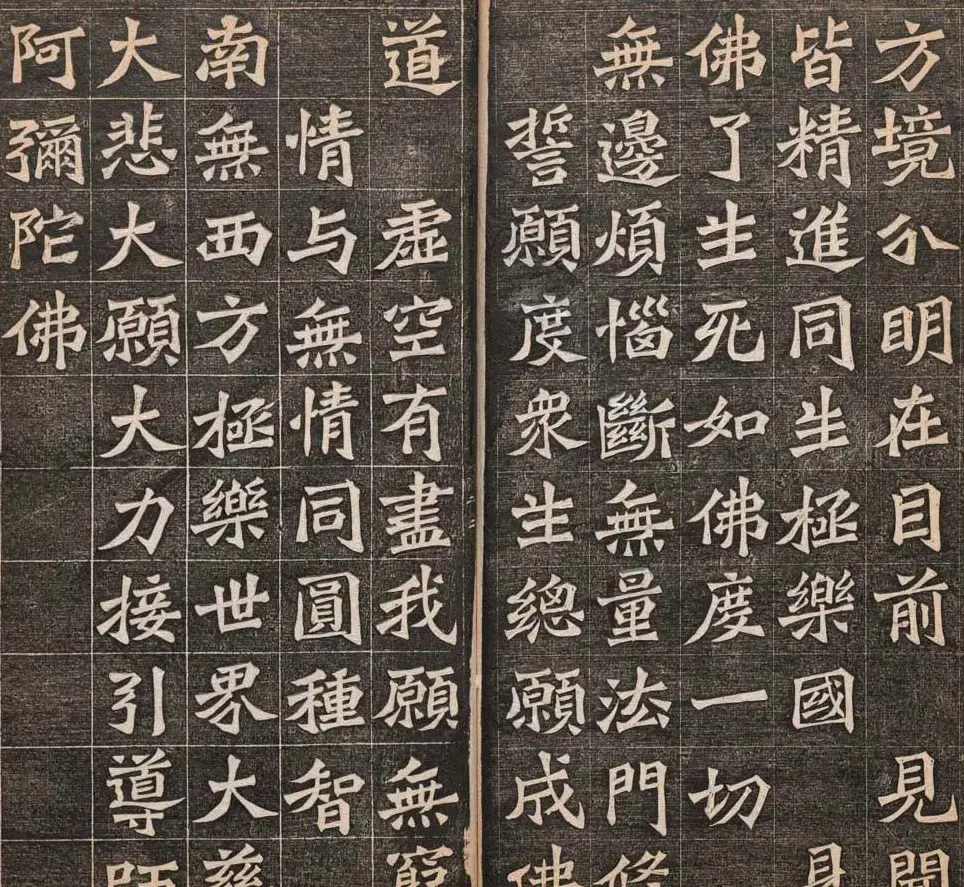 方境分明在目前 見聞
皆精進同生極樂國 見
佛了生死如佛度一切
無邊煩惱斷無量法門修
誓願度衆生總願成佛
道 虛空有盡我願無窮
情与無情同圓種智
南無西方極樂世界大慈
大悲大願大力接引導師
阿彌陀佛